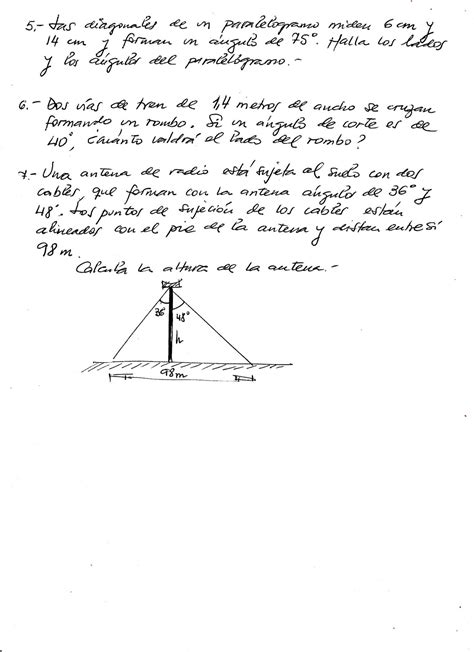 5.- Las diagonales de un paralelogramo miden 6 cm y
14 cm y forman un ángulo de 75°. Halla los lados
y los ángulos del paralelogramo.-
6.- Dos vías de tren de 1,4 metros de ancho se cruzan
formando un rombo. Si un ángulo de corte es de
40°, ¿cuánto valdrá el lado del rombo?
7.- Una antena de radio está sujeta al suelo con dos
cables, que forman con la antena ángulos de 36° y
48°. Los puntos de sujeción de los cables están
alineados con el pie de la antena y distan entre sí
98 m.
Calcula la altura de la antena.-
36° 48°
h
98m